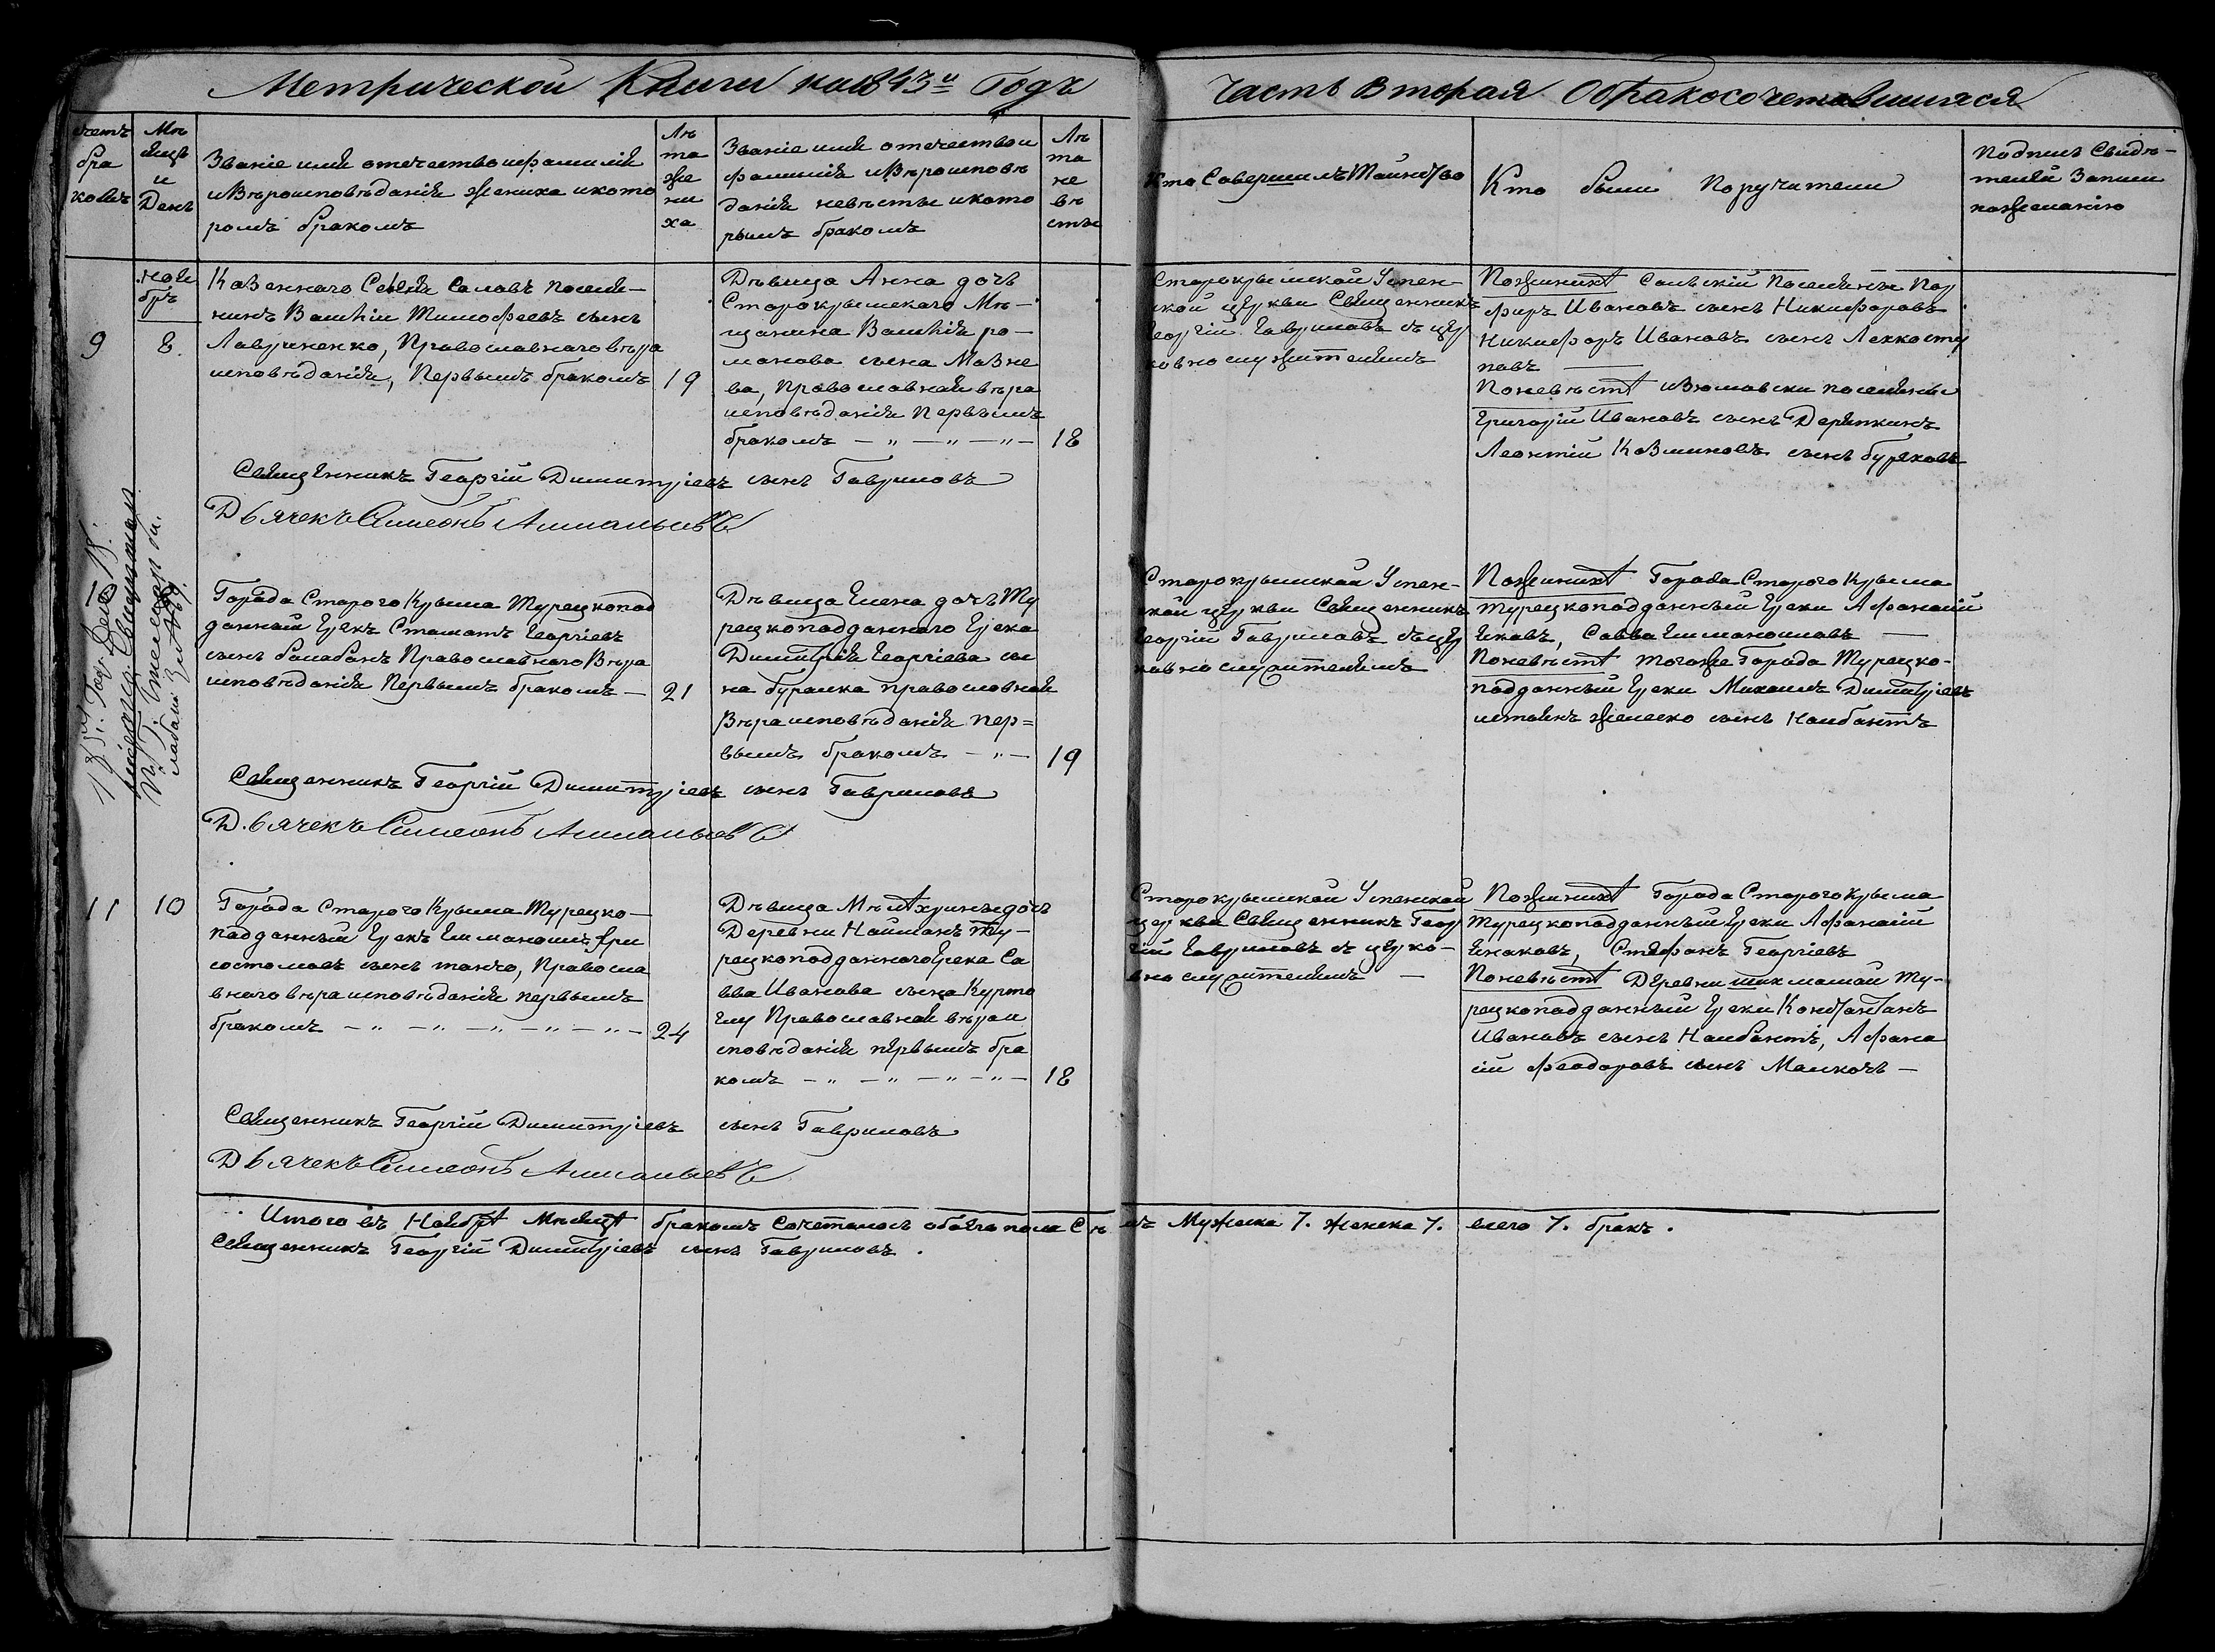 Метрической Книги на 1843й Годъ
Часть Вторая О бракосочетавшихся
счетъ браковъ
Мѣсяцъ и День
Званіе имя отечество и фамилія
и Вѣроисповѣданія Жениха и кото
ромъ бракомъ
Лѣ
та
же
ни
ха
Званіе имя отечество и
фамилія и Вѣроисповѣ
данія невѣсты и кото
рымъ бракомъ
Лѣ
та
не
вѣ
сты
Кто Совершилъ Таинство
Кто были Поручители
Подпись Свидѣ-
телей Записи
по желанію
9
Ноя
бръ
8.
Казеннаго Селенія Саловъ поселя-
нинъ Василій Тимофеевъ сынъ
Лавриненко, Православнаго вѣра
исповѣданія, Первымъ бракомъ
19
Дѣвица Анна дочь
Старокрымскаго Мѣ-
щанина Василія ро-
манова сына Мазне
ва, Православнай вѣра
исповѣданія Первымъ
бракомъ — „ — „ — „ —
18
Старокрымской Успен-
ской церкви Священникъ
Георгій Гавриловъ съ цер
ковно служителямъ
По женихѣ Сальскій Поселянъ Пор
фиръ Ивановъ сынъ Никифоровъ
Никифоръ Ивановъ сынъ Легкосту
повъ —
По невѣстѣ Изюмовски поселяны
Григорій Ивановъ сынъ Деряпкинъ
Леонтій Козминовъ сынъ Бураковъ
Священникъ Георгій Димитріевъ сынъ Гавриловъ
Дьячекъ Симеонъ
Города Старого Крыма Турецкопод
данный Грекъ Стаматъ Георгіевъ
сынъ балабанъ Православнаго Вѣра
исповѣданія Первымъ бракомъ —
21
Дѣвица Елена дочь Ту
рецкоподданнаго Грека
Димитрія Георгіева сы
на буралка православнай
Вѣра исповѣданія пер=
вымъ бракомъ — „ —
19
Старокрымской Успен-
ской церкви Священникъ
Георгій Гавриловъ съ цер
ковно служителямъ
По женихѣ Города Старого Крыма
Турецкоподданный Греки Афанасій
Саква Еммануиловъ —
По невѣстѣ тогоже Города Турецко-
подданный Греки Михаилъ Димитріевъ
желеско сынъ Налбантъ
Священникъ Георгій Димитріевъ сынъ Гавриловъ
Дьячекъ Симеонъ
11
10
Города Старого Крыма Турецко-
подданный Грекъ Еммануилъ Хри
состомовъ сынъ танчо, Правосла
внаго вѣра исповѣданія первымъ
бракомъ — „ — „ — „ — „ — „ —
24
Дѣвица дочь
Деревни Найманъ Ту-
рецкоподданнаго Грека Са
вва Иванова сына Курто
глу Православнай вѣрои
сповѣданія первымъ бра
комъ — „ — „ — „ — „ —
18
Старокрымской Успенской
церква Священникъ Геор
гій Гавриловъ съ церко-
вно служителямъ —
По женихѣ Города Старого Крыма
Турецкоподданный Греки Афанасій
Стефанъ Георгіевъ
По невѣстѣ Деревни Ту-
рецкоподданный Греки Константанъ
Ивановъ сынъ Налбантъ, Афана
ій Феодоровъ сынъ —
Священникъ Георгій Димитріевъ сынъ Гавриловъ
Дьячекъ Симеонъ
Итого въ Ноябрѣ Мѣсяцѣ бракомъ Сочеталось обоего пола Съ мъ Мужеска 7. женска 7. всего 7. бракъ.
Священникъ Георгій Димитріевъ сынъ Гавриловъ.